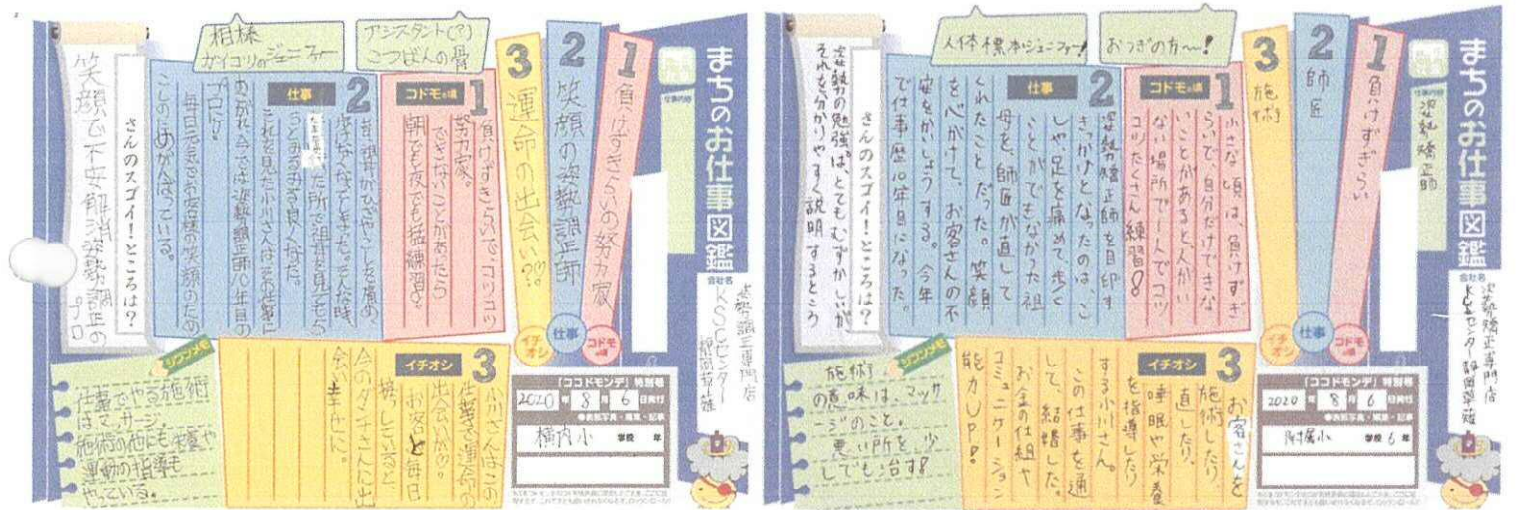 相棒
ガイコツのジェニファー
アシスタント(?)
こつばんの骨
まちのお仕事図鑑
会社名
姿勢調正専門店
KSCセンター
静岡草薙
1 負けずぎらいの努力家
2 笑顔の姿勢調正師
3 運命の出会い?♡
コドモの頃
仕事
イチオシ
1 コドモの頃
負けずぎらいで、コツコツ
努力家。
できないことがあったら
朝でも夜でも猛練習!
2 仕事
祖母がひざやこしを痛め、
歩けなくなってしまった。そんな時、
た所で祖母を見てもら
うとみるみる良くなった。
これを見た小川さんはお仕事に
あこがれ今では姿勢調正師10年目の
プロに!
毎日元気でお客様の笑顔のため
このためがんばっている。
3 イチオシ
小川さんはこの
仕業で運命の
出会いが♡
お客と毎日
接していると、
今のダンナさんに出
会い幸せに。
さんのスゴイ!ところは?
笑顔で不安解消姿勢調正の
プロ
ジウンメモ
仕事でやる施術
はマッサージ。
施術の他にも栄養や
運動の指導も
やっている。
「ココドモンデ」特別号
2020年8月6日発行
●表紙写真・編集・記事
横内小 学校 年
人体標本ジェニファー!
おつぎの方〜!
まちのお仕事図鑑
仕事内容
姿勢矯正師
会社名
姿勢矯正専門店
KSCセンター静岡草薙
1 負けずぎらい
2 師匠
3 施術
コドモの頃
仕事
イチオシ
1 コドモの頃
小さな頃は負けずぎ
らいで、自分だけできな
いことがあると、人がい
ない場所で一人でコツ
コツたくさん練習!
2 仕事
姿勢矯正師を目印す
きっかけとなったのはこ
しや足を痛めて、歩く
ことができなかった祖
母を、師匠が直して
くれたことだった。笑顔
を心がけて、お客さんの不
安をかいしょうする。今年
で仕事歴10年目になった。
3 イチオシ
お客さんを
施術したり、
直したり、
睡眠や栄養
を指導したり
する小川さん。
この仕事を通
して、結婚した。
お金の仕組や
コミュニケーション
能力UP!
さんのスゴイ!ところは?
姿勢の勉強は、とてもむずかしいが
それを分かりやすく説明するところ
ジウンメモ
施術
の意味は、マッサ
ージのこと。
悪い所を少
しでも治す!
「ココドモンデ」特別号
2020年8月6日発行
●表紙写真・編集・記事
附属小 学校 6年